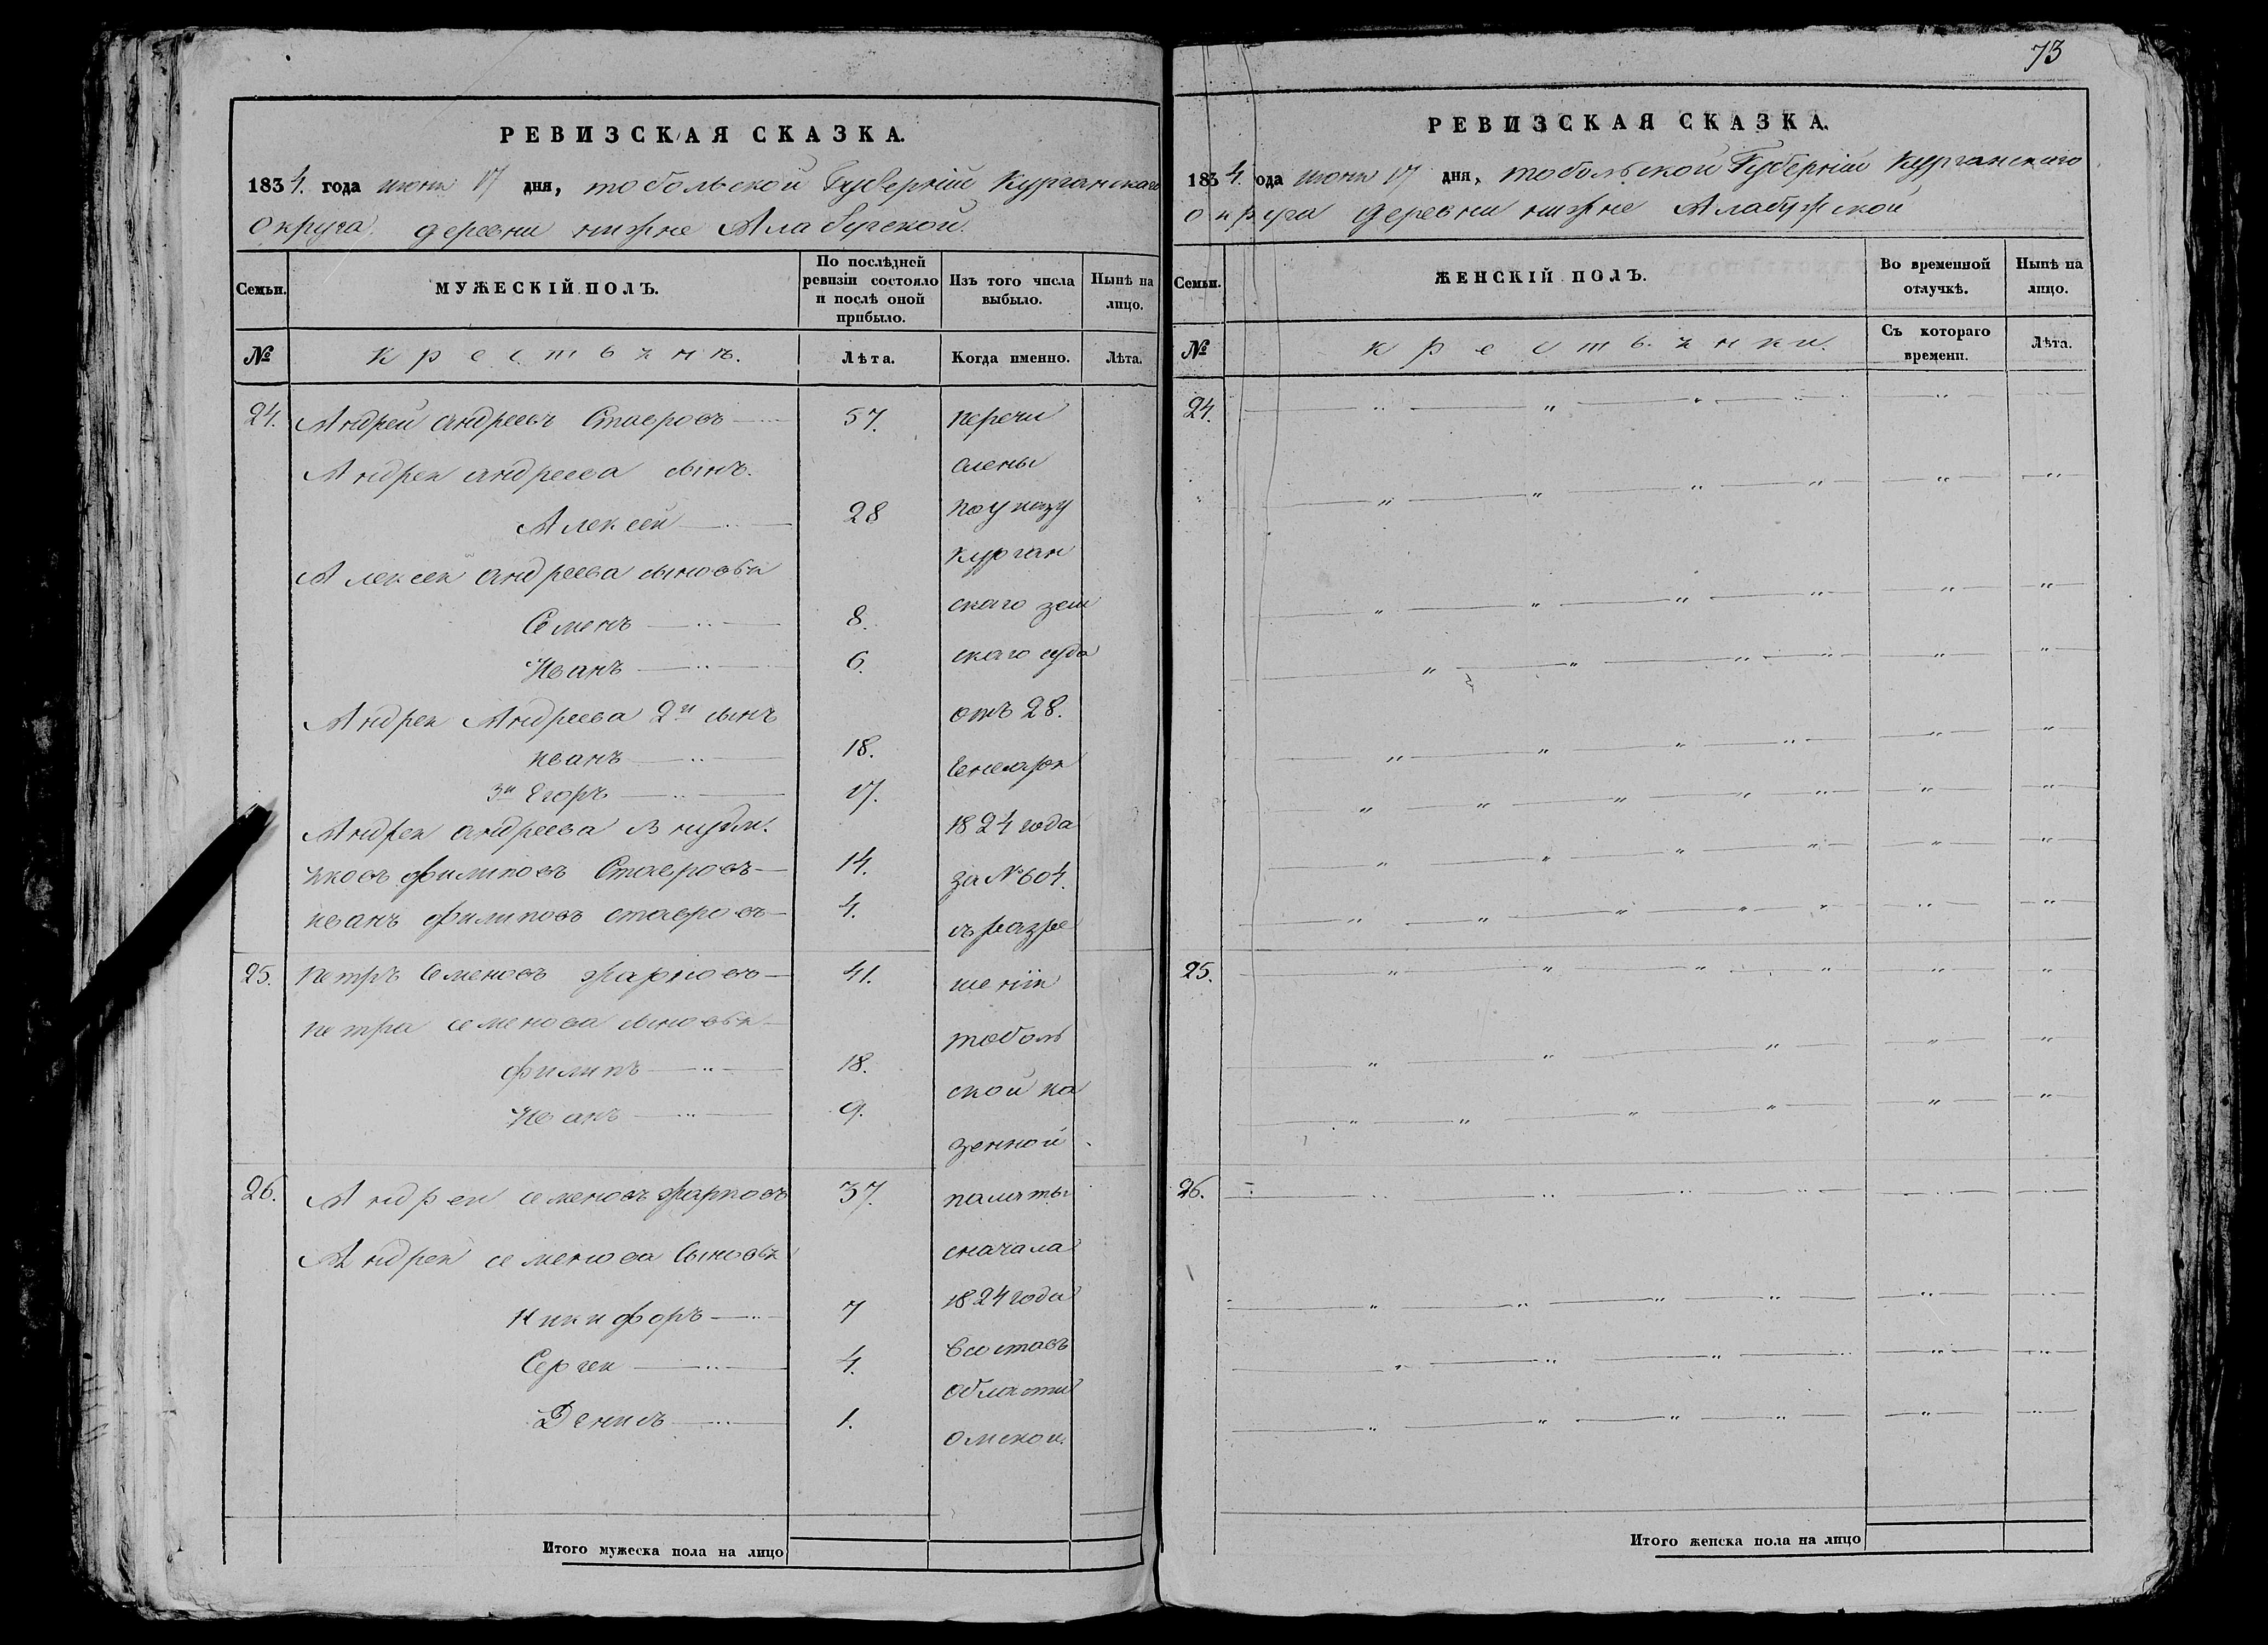 РЕВИЗСКАЯ СКАЗКА.
1834. года июня 17 дня, тобольской Губерніи Курганскаго
округа деревни нижне Алабугской
Семьи. МУЖЕСКІЙ ПОЛЪ. По послѣдней ревизіи состояло и послѣ оной прибыло. Изъ того числа выбыло. Нынѣ на лицо.
№ крестьянъ. Лѣта. Когда именно. Лѣта.
24. Андрей андреевъ Ставровъ 57. перечи
Андрея андреева сынъ. слены
Алексей 28 по указу
курган
Алексея андреева сыновья
Семенъ 8. скаго зем
Иванъ 6. скаго суда
Андрея Андреева 2й сынъ отъ 28.
иванъ 18.
генваря
3й Егоръ 17.
Андрея андреева внуки. 1824 года
яковъ филиповъ Ставровъ 14. за №604.
иванъ филиповъ ставровъ 4. съ разре
25. петръ Семеновъ 41. шенія
петра семенова сыновья тоболь
филипъ 18. ской ка
Иванъ 9. зенной
26. Андрей семеновъ 37. палаты
Андрея семенова Сыновья сначала
Никифоръ 7 1824 года
Сергей 4. в составъ
области
Денисъ 1. омской.
Итого мужеска пола на лицо
73
РЕВИЗСКАЯ СКАЗКА.
1834. года июня 17 дня, тобольской Губерніи Курганскаго
округа деревни нижне Алабужской
Семьи. ЖЕНСКІЙ ПОЛЪ. Во временной отлучкѣ. Нынѣ на лицо.
№ крестьянки. Съ котораго времени. Лѣта.
24.
25.
26.
Итого женска пола на лицо